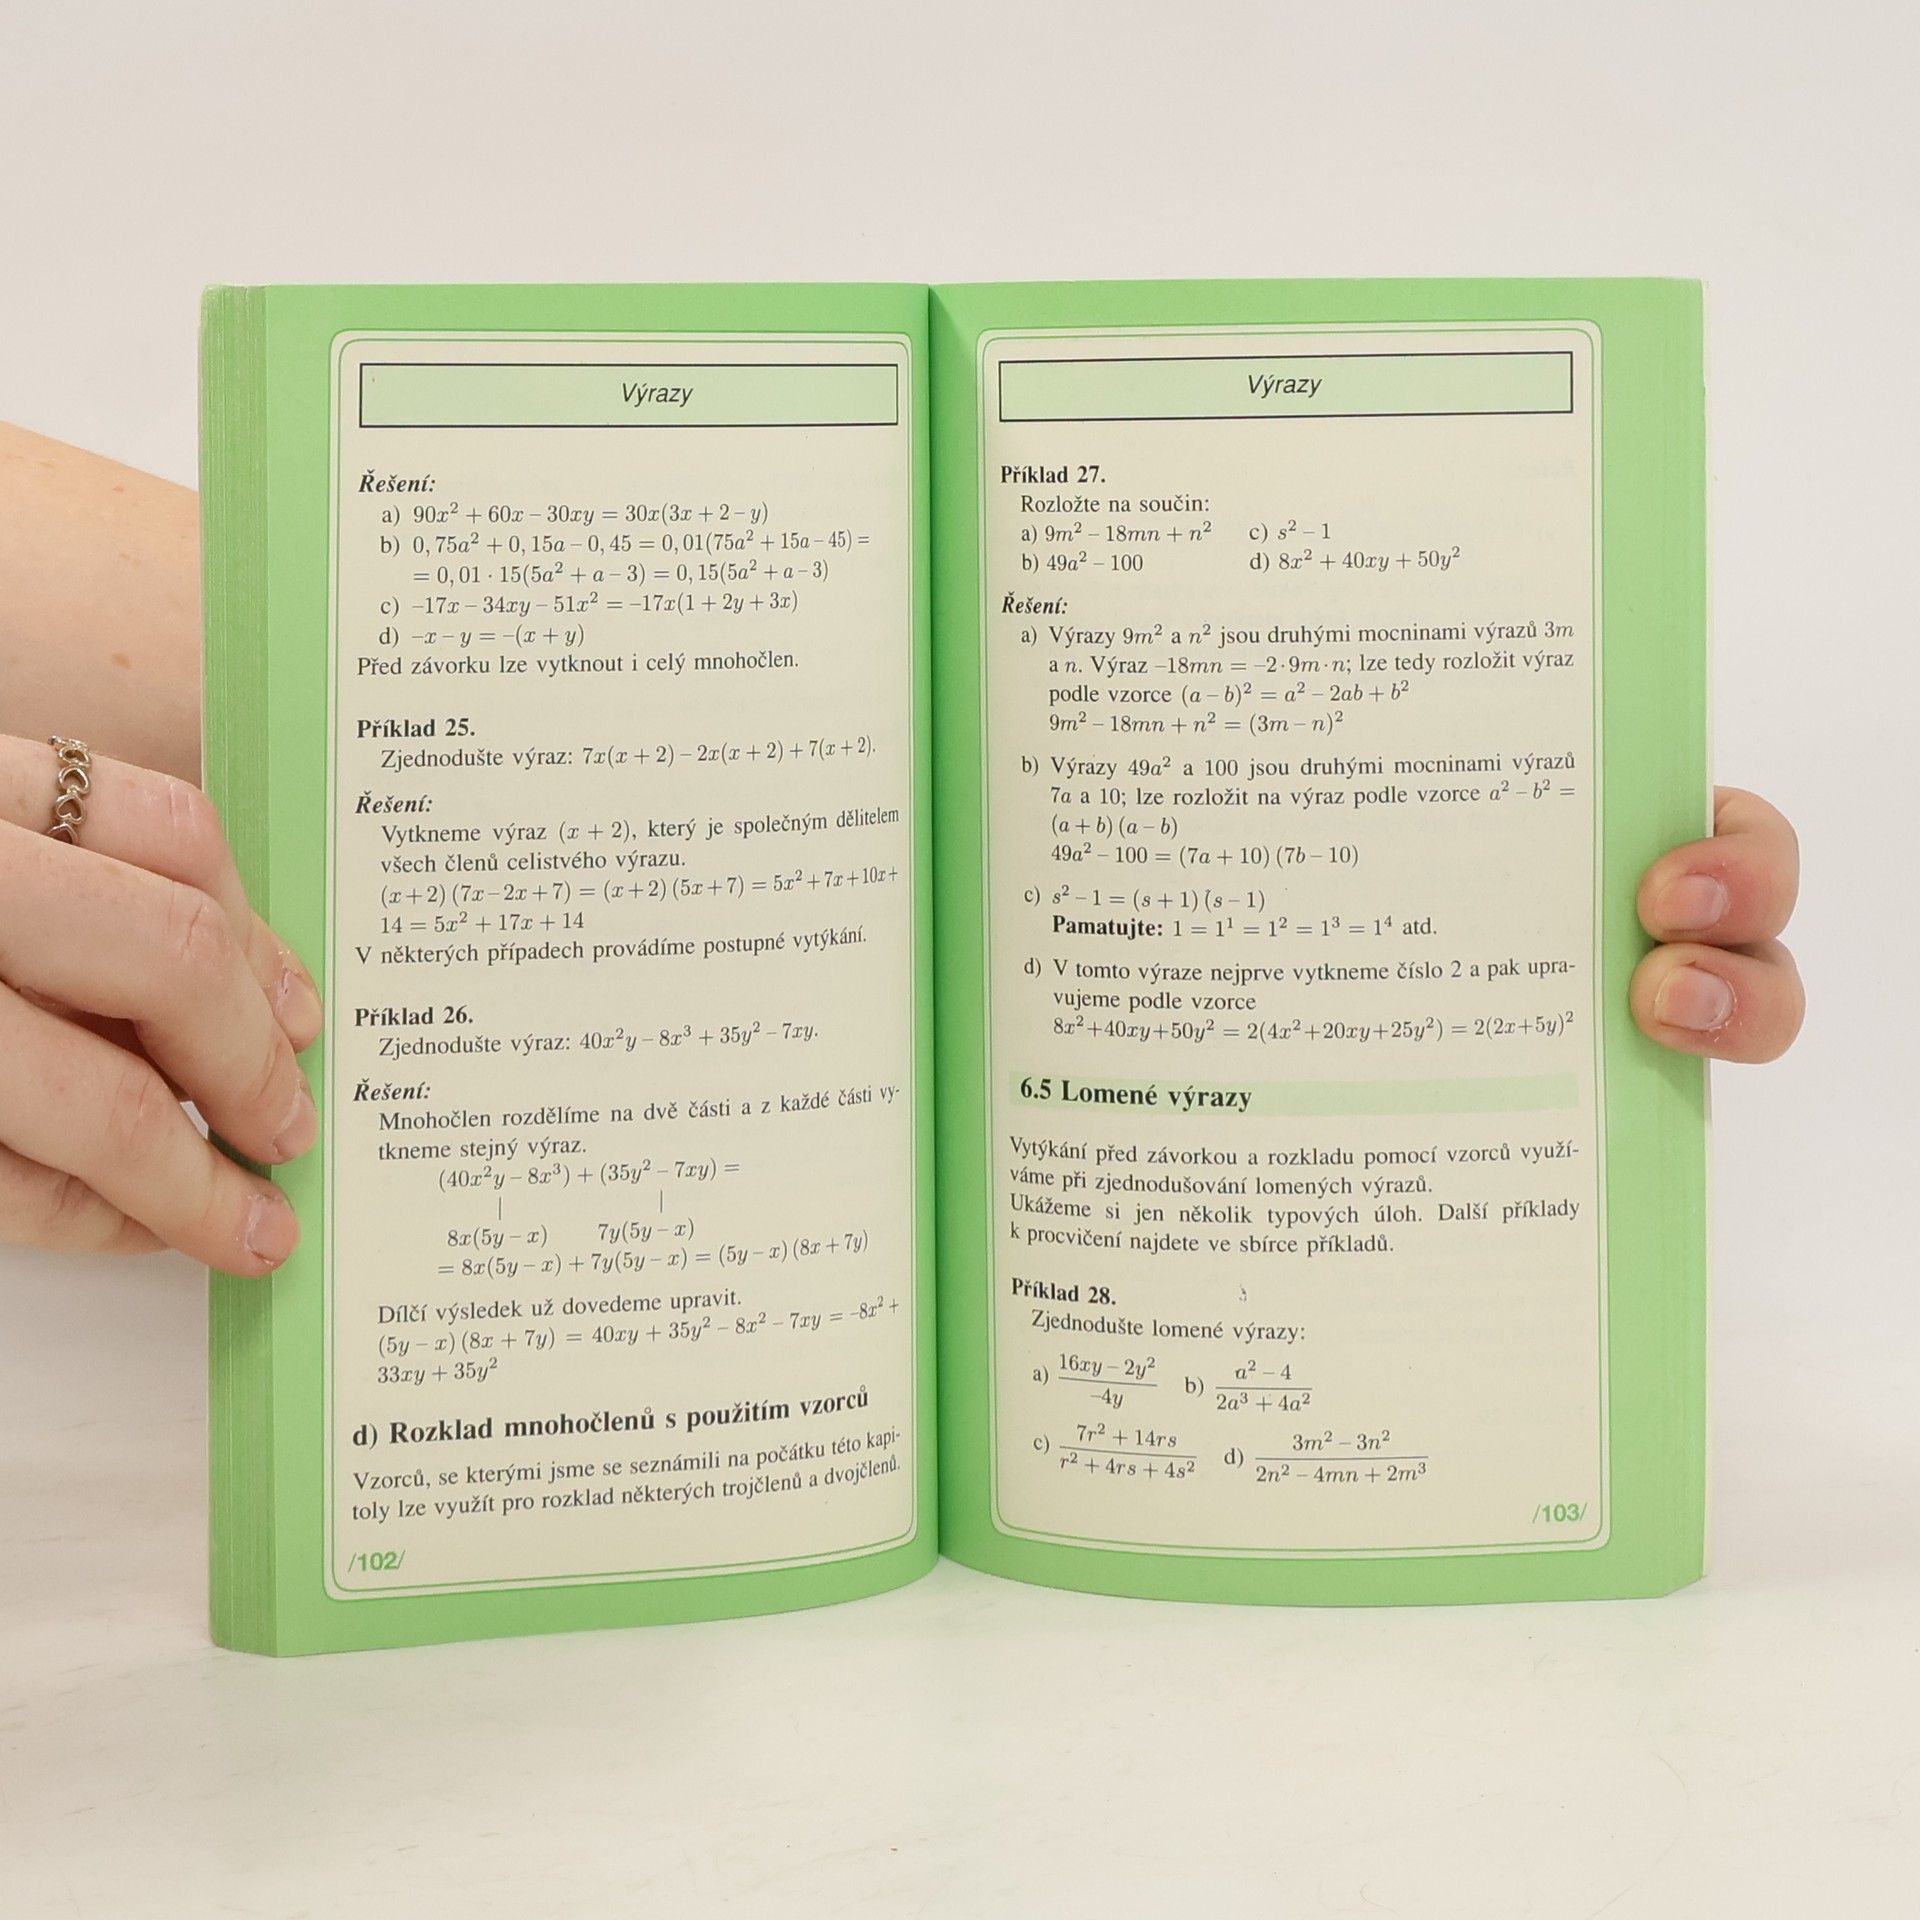 Výrazy
Řešení:
a) 90x² + 60x – 30xy = 30x(3x + 2 – y)
b) 0,75a² + 0,15a – 0,45 = 0,01(75a² + 15a – 45) =
= 0,01 · 15(5a² + a – 3) = 0,15(5a² + a – 3)
c) –17x – 34xy – 51x² = –17x(1 + 2y + 3x)
d) –x – y = –(x + y)
Před závorku lze vytknout i celý mnohočlen.
Příklad 25.
Zjednodušte výraz: 7x(x + 2) – 2x(x + 2) + 7(x + 2).
Řešení:
Vytkneme výraz (x + 2), který je společným dělitelem
všech členů celistvého výrazu.
(x + 2) (7x – 2x + 7) = (x + 2) (5x + 7) = 5x² + 7x + 10x +
14 = 5x² + 17x + 14
V některých případech provádíme postupné vytýkání.
Příklad 26.
Zjednodušte výraz: 40x²y – 8x³ + 35y² – 7xy.
Řešení:
Mnohočlen rozdělíme na dvě části a z každé části vy-
tkneme stejný výraz.
(40x²y – 8x³) + (35y² – 7xy) =
| |
8x(5y – x) 7y(5y – x)
= 8x(5y – x) + 7y(5y – x) = (5y – x) (8x + 7y)
Dílčí výsledek už dovedeme upravit.
(5y – x) (8x + 7y) = 40xy + 35y² – 8x² – 7xy = –8x² +
33xy + 35y²
d) Rozklad mnohočlenů s použitím vzorců
Vzorců, se kterými jsme se seznámili na počátku této kapi-
toly lze využít pro rozklad některých trojčlenů a dvojčlenů.
/102/
Výrazy
Příklad 27.
Rozložte na součin:
a) 9m² – 18mn + n² c) s² – 1
b) 49a² – 100 d) 8x² + 40xy + 50y²
Řešení:
a) Výrazy 9m² a n² jsou druhými mocninami výrazů 3m
a n. Výraz –18mn = –2·9m·n; lze tedy rozložit výraz
podle vzorce (a – b)² = a² – 2ab + b²
9m² – 18mn + n² = (3m – n)²
b) Výrazy 49a² a 100 jsou druhými mocninami výrazů
7a a 10; lze rozložit na výraz podle vzorce a² – b² =
(a + b) (a – b)
49a² – 100 = (7a + 10) (7b – 10)
c) s² – 1 = (s + 1) (s – 1)
Pamatujte: 1 = 1¹ = 1² = 1³ = 1⁴ atd.
d) V tomto výraze nejprve vytkneme číslo 2 a pak upra-
vujeme podle vzorce
8x²+40xy+50y² = 2(4x²+20xy+25y²) = 2(2x+5y)²
6.5 Lomené výrazy
Vytýkání před závorkou a rozkladu pomocí vzorců využí-
váme při zjednodušování lomených výrazů.
Ukážeme si jen několik typových úloh. Další příklady
k procvičení najdete ve sbírce příkladů.
Příklad 28.
Zjednodušte lomené výrazy:
a) (16xy – 2y²)/(–4y) b) (a² – 4)/(2a³ + 4a²)
c) (7r² + 14rs)/(r² + 4rs + 4s²) d) (3m² – 3n²)/(2n² – 4mn + 2m³)
/103/